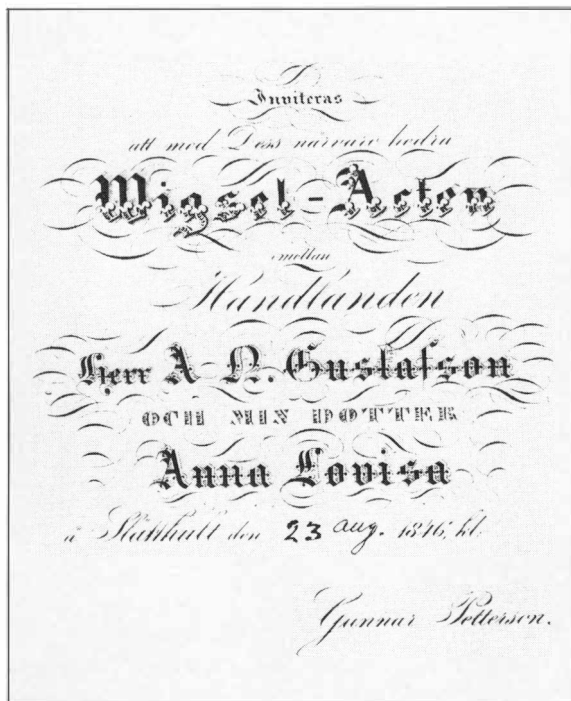 I
Inviteras
att med Dess närvaro hedra
Wigsel-Acten
emellan
Handlanden
Herr A N. Gustafson
OCH MIN DOTTER
Anna Lovisa
å Slätthult den 23 aug. 1846, kl.
Gunnar Petterson.